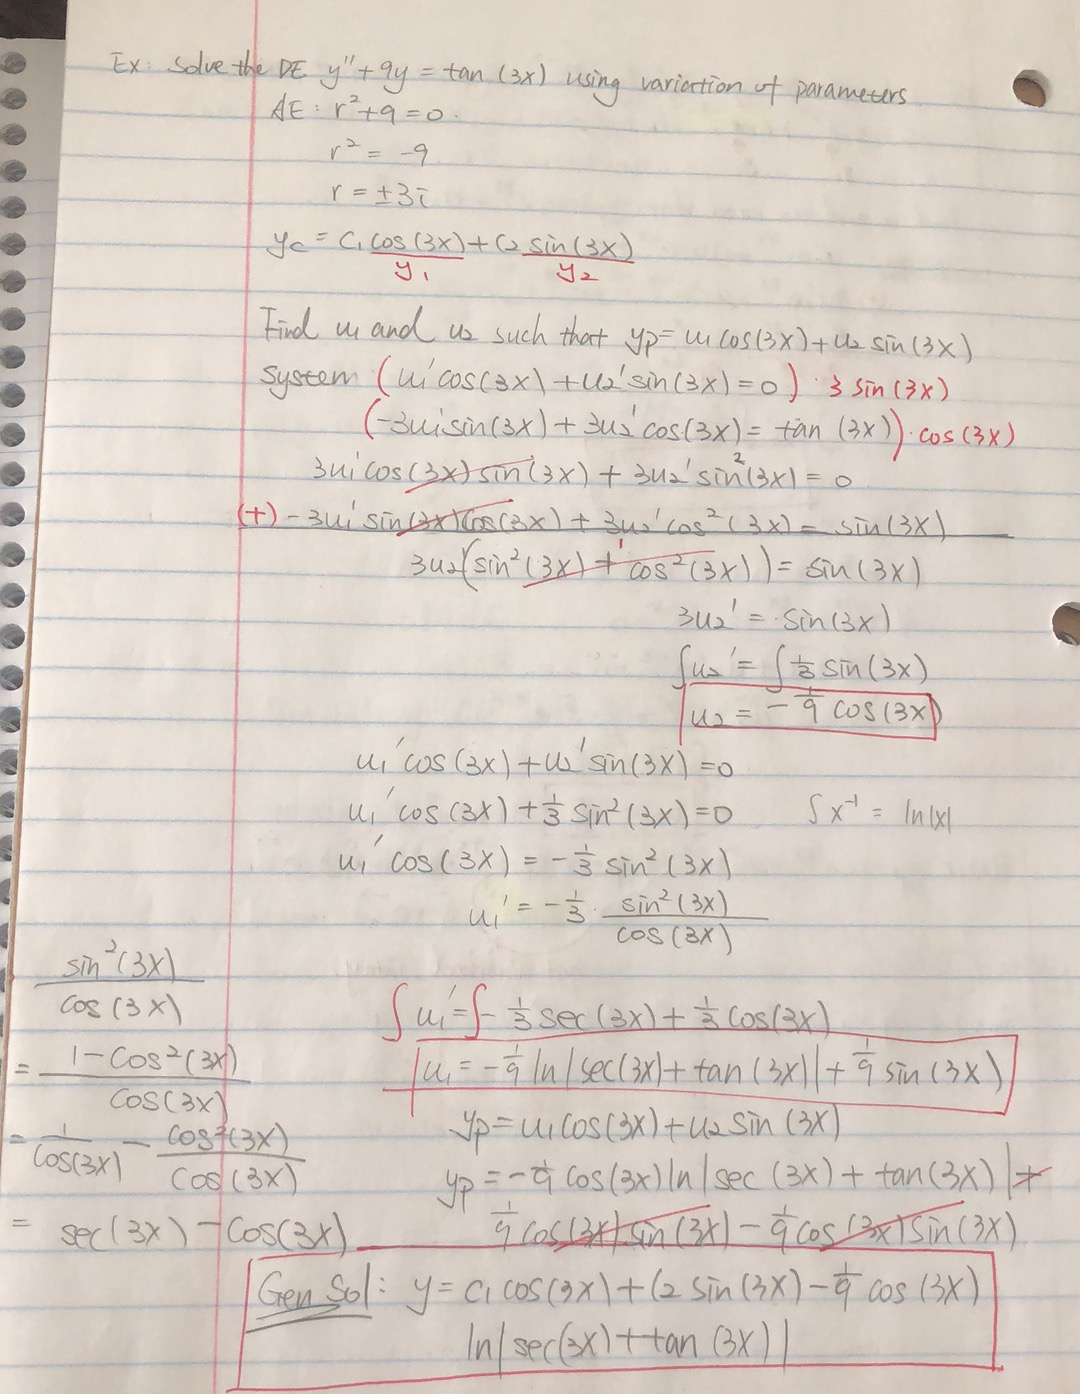 Ex: Solve the DE y'' + 9y = tan (3x) using variation of parameters
AE: r² + 9 = 0.
r² = -9
r = ±3i
yc = C₁ cos (3x) + C₂ sin (3x)
y₁ y₂
Find u₁ and u₂ such that yp = u₁ cos(3x) + u₂ sin (3x)
System (u₁' cos(3x) + u₂' sin(3x) = 0) · 3 sin (3x)
(-3u₁' sin(3x) + 3u₂' cos(3x) = tan (3x)) · cos (3x)
3u₁' cos(3x) sin(3x) + 3u₂' sin²(3x) = 0
(+) - 3u₁' sin(3x) cos(3x) + 3u₂' cos² (3x) = sin (3x)
1
3u₂ (sin² (3x) + cos² (3x)) = sin (3x)
3u₂' = sin (3x)
∫u₂' = ∫ 1/3 sin (3x)
u₂ = - 1/9 cos (3x)
u₁' cos (3x) + u₂' sin(3x) = 0
u₁' cos (3x) + 1/3 sin² (3x) = 0 ∫ x⁻¹ = ln|x|
u₁' cos (3x) = - 1/3 sin² (3x)
u₁' = - 1/3 · sin² (3x) / cos (3x)
sin² (3x) / cos (3x)
= 1 - cos² (3x) / cos (3x)
= 1 / cos(3x) - cos² (3x) / cos (3x)
= sec (3x) - cos(3x)
∫ u₁' = ∫ - 1/3 sec (3x) + 1/3 cos(3x)
u₁ = - 1/9 ln | sec(3x) + tan (3x) | + 1/9 sin (3x)
yp = u₁ cos(3x) + u₂ sin (3x)
yp = - 1/9 cos(3x) ln | sec (3x) + tan(3x) | +
1/9 cos (3x) sin (3x) - 1/9 cos (3x) sin (3x)
Gen Sol: y = C₁ cos (3x) + C₂ sin (3x) - 1/9 cos (3x)
ln | sec(3x) + tan (3x) |